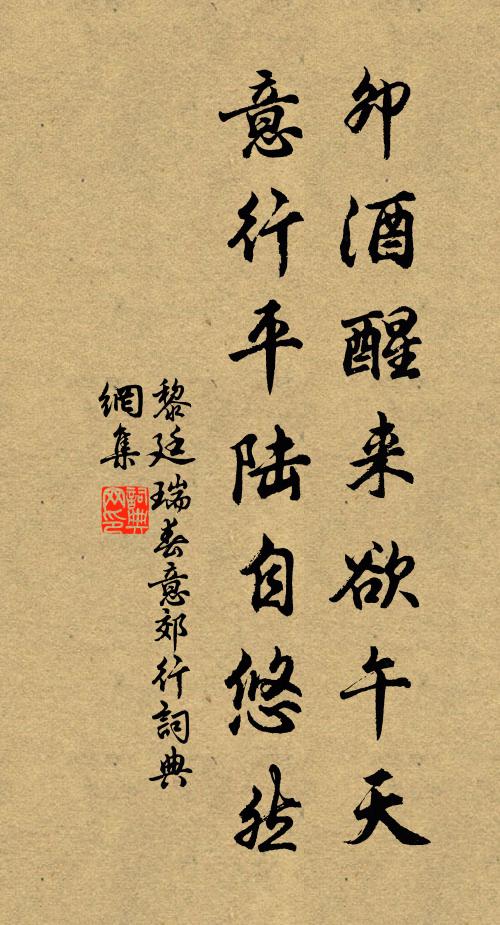 卯酒醒来欲午天
意行平陆自悠然
黎廷瑞春意郊行詞典
網集
詞典
网印